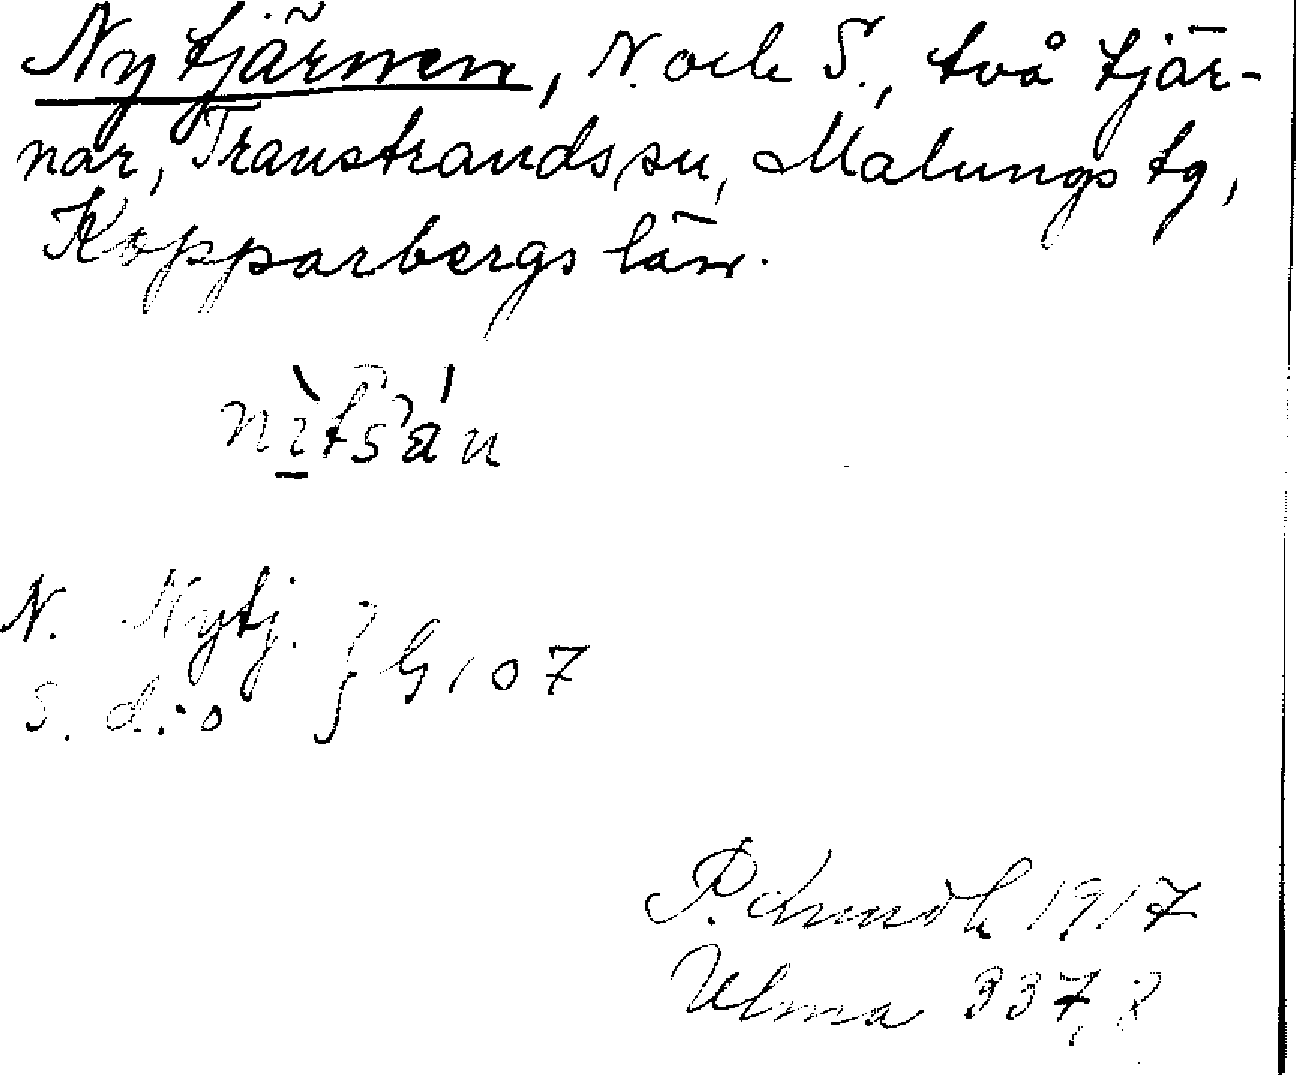 Nytjärnen, N. och S., två tjär-
nar, Transtrands sn, Malungs tg,
Kopparbergs län.
N. Nytj.
S. d:o } G 107
P. 1917
Ulma 337,